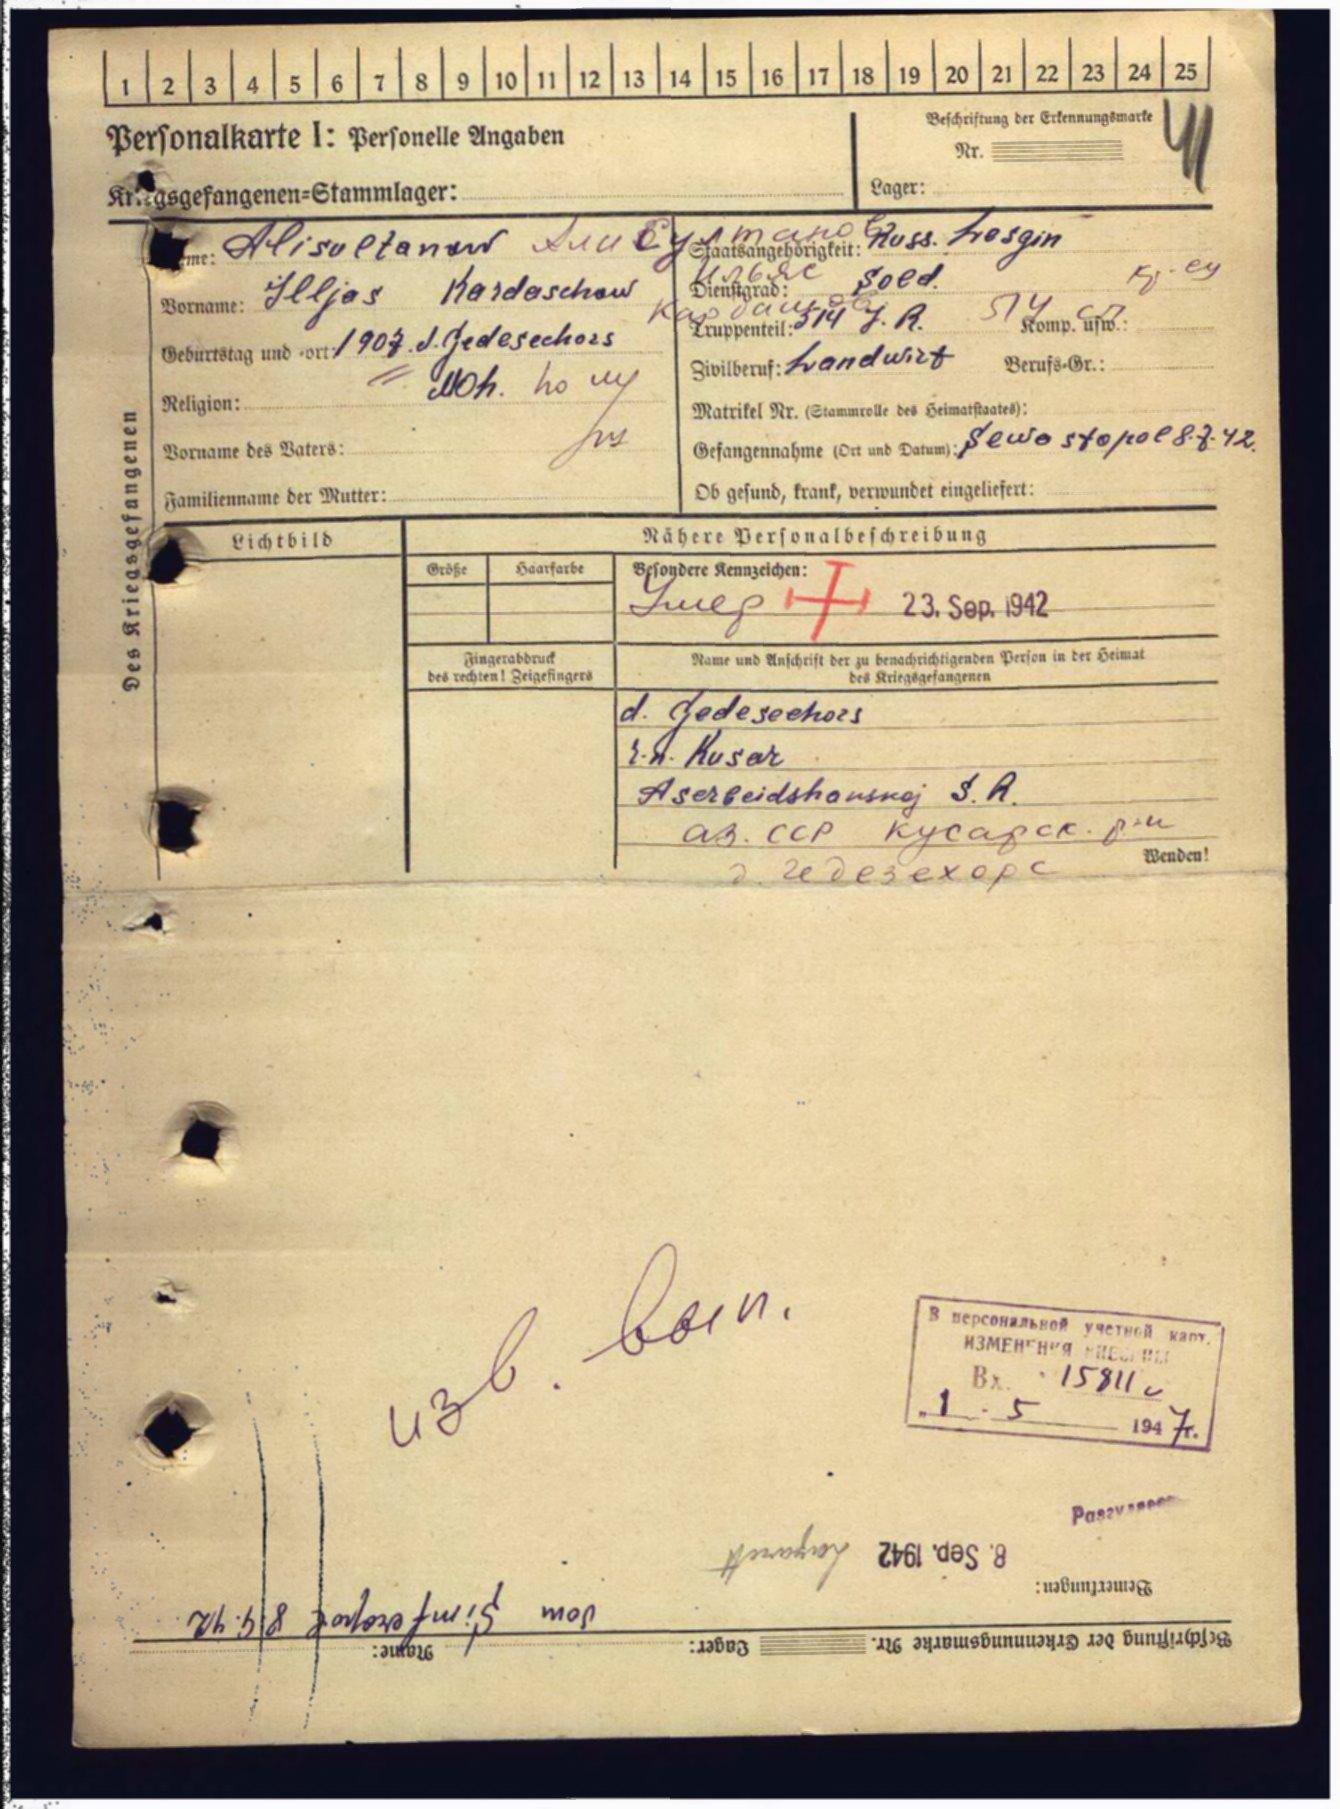 1 2 3 4 5 6 7 8 9 10 11 12 13 14 15 16 17 18 19 20 21 22 23 24 25
Personalkarte I: Personelle Angaben
Beschriftung der Erkennungsmarke
Nr.
Kriegsgefangenen=Stammlager:
Lager:
Des Kriegsgefangenen
Name: Alisultanow Али Султанов
Staatsangehörigkeit: Russ. Lesgin
Vorname: Illjas Kardaschow Ильяс
Dienstgrad: Sold. кр-ец
Кардашов
Truppenteil: 514 J. R. 514 сп Komp. usw.:
Geburtstag und -ort: 1907. d. Jedesechors
Zivilberuf: Landwirt Berufs=Gr.:
Religion: Moh.
Matrikel Nr. (Stammrolle des Heimatstaates):
Vorname des Vaters:
Gefangennahme (Ort und Datum): Sewastopol 8.7.42.
Familienname der Mutter:
Ob gesund, krank, verwundet eingeliefert:
Lichtbild
Nähere Personalbeschreibung
Größe
Haarfarbe
Besondere Kennzeichen:
Умер 23. Sep. 1942
Fingerabdruck
des rechten! Zeigefingers
Name und Anschrift der zu benachrichtigenden Person in der Heimat
des Kriegsgefangenen
d. Jedesechors
r.n. Kusar
Aserbeidshanskoj S. R.
Аз. ССР Кусарск. р-н
Wenden!
д. Гедезехорс
изв. вып.
В персональной учетной карт.
ИЗМЕНЕНИЯ ВНЕСЕНЫ
Вх. 15811
„1 - 5 1947г.
Beschriftung der Erkennungsmarke Nr. Lager: Name:
vom Simferopol 8.9.42
Bemerkungen:
8. Sep. 1942 Lazarett